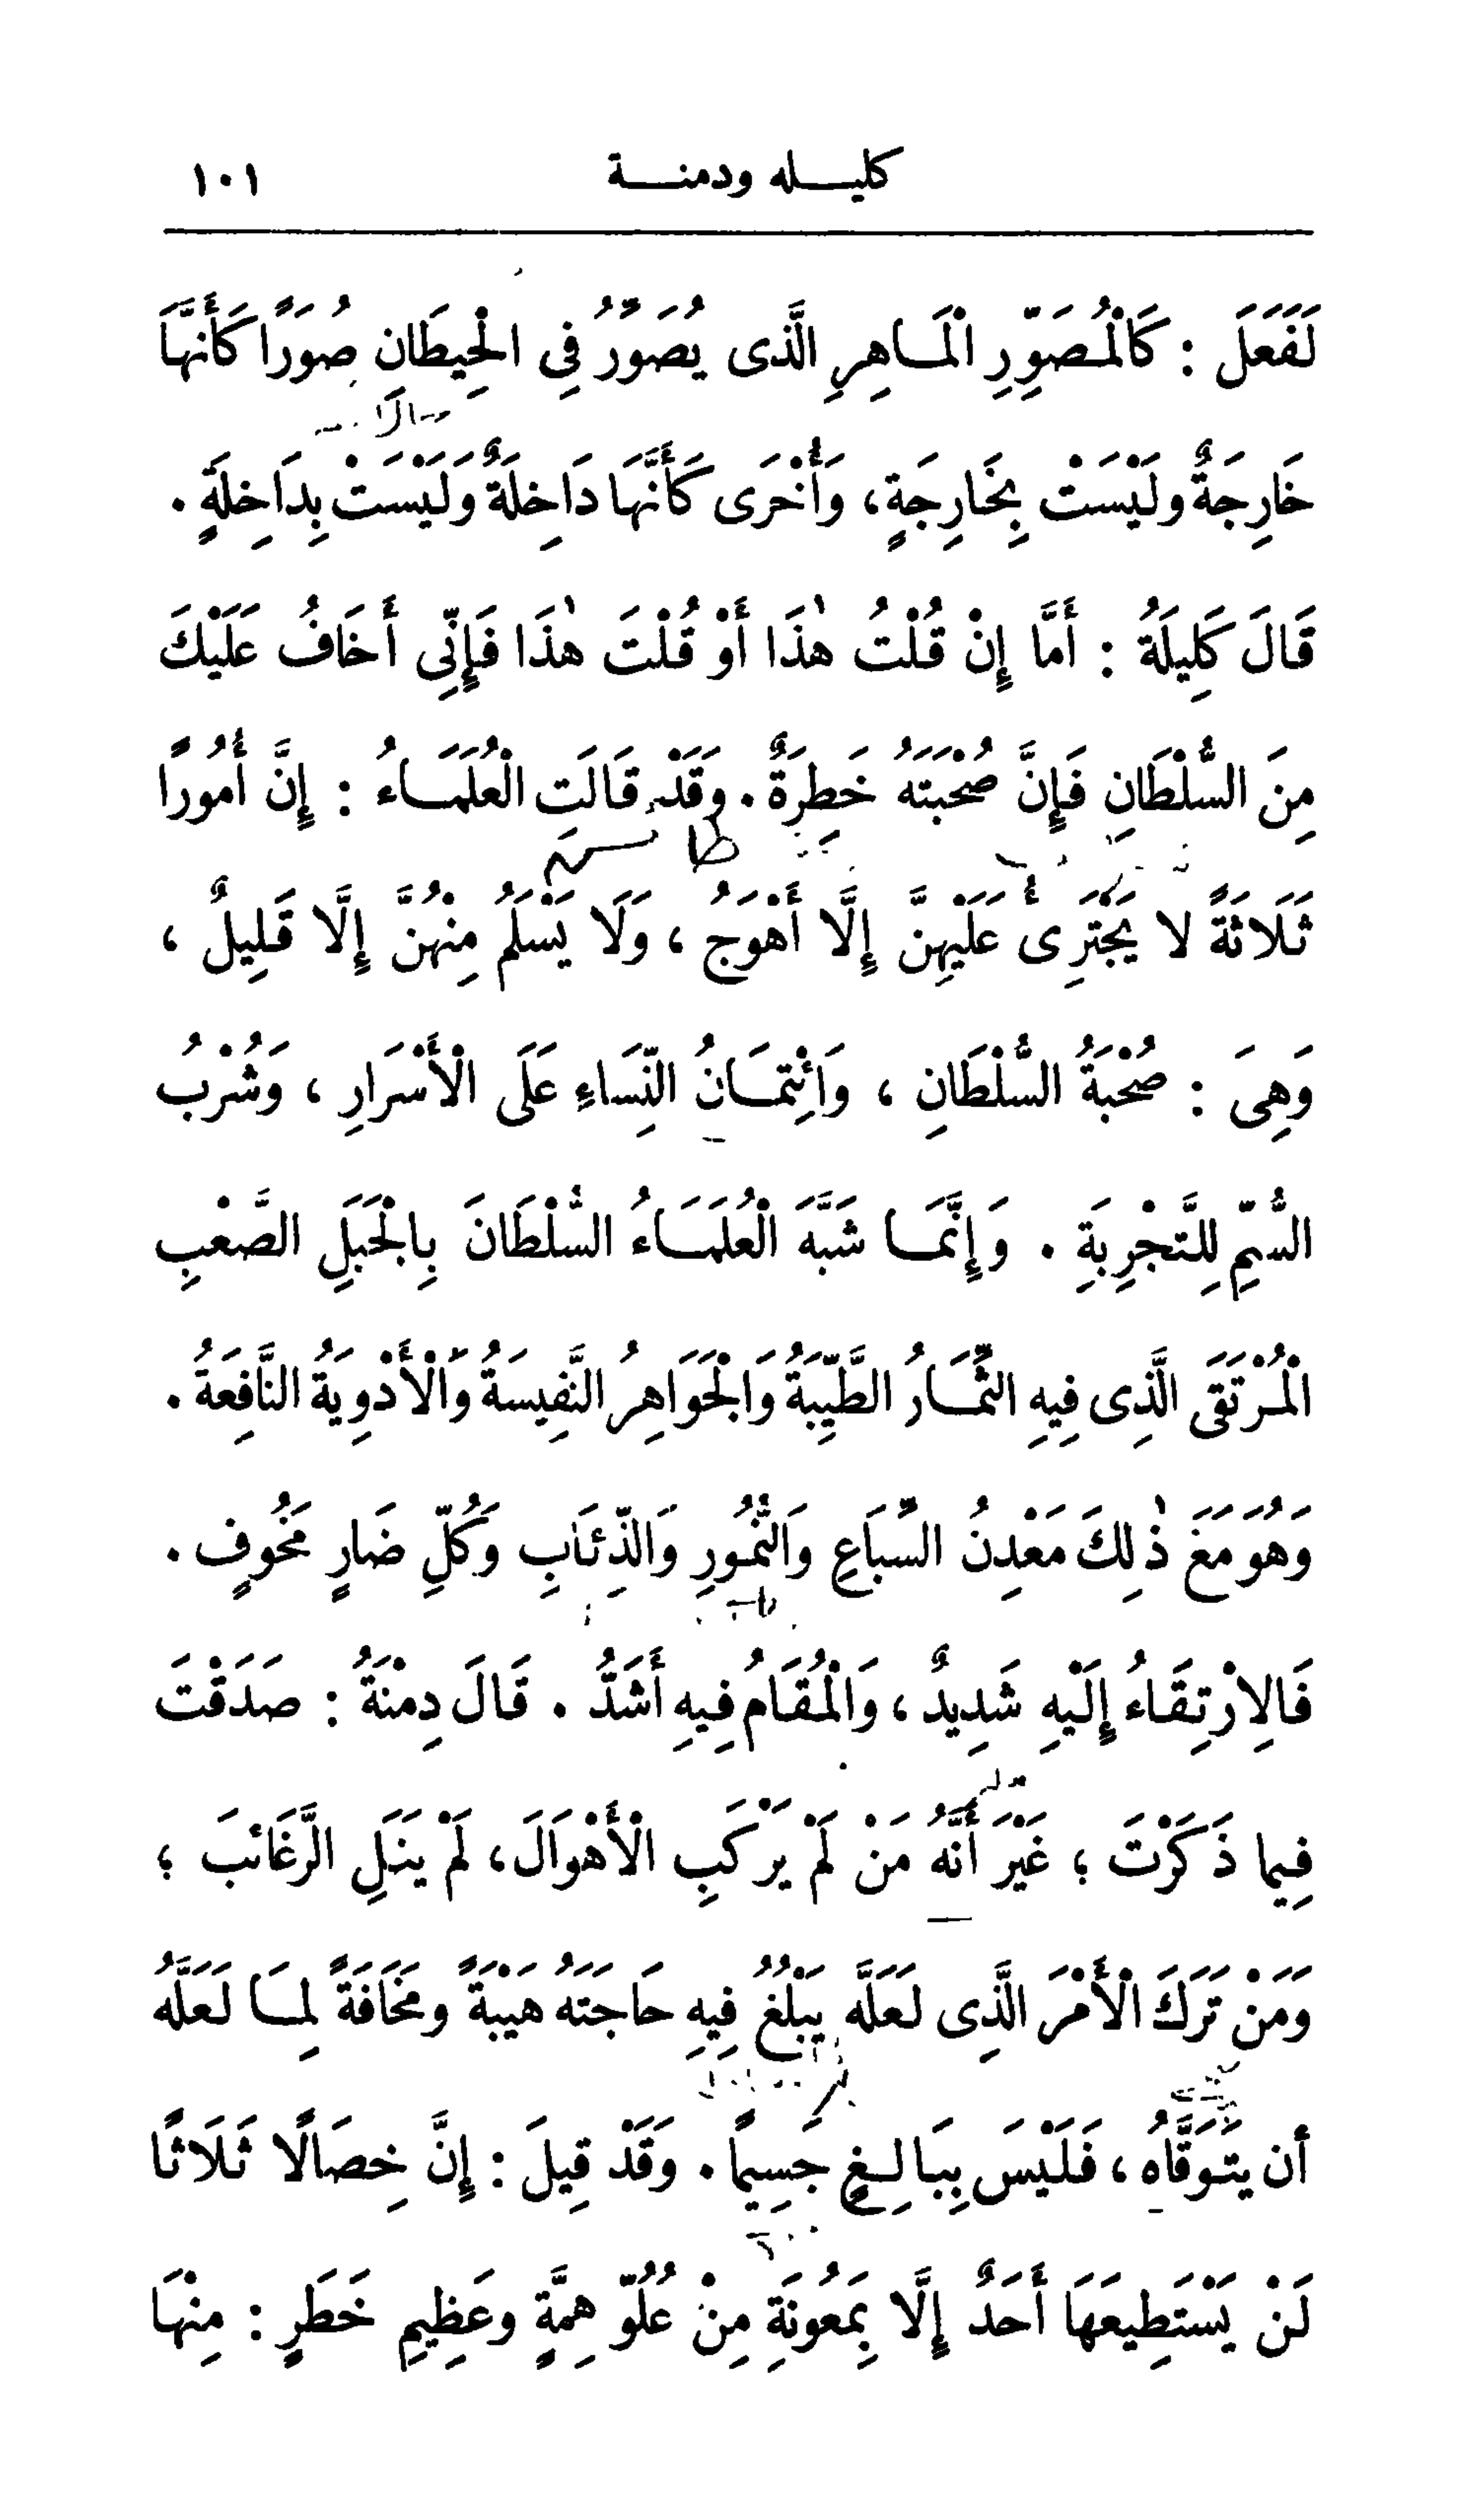 كليـــله ودمنـــة ١٠١
لَفَعَلَ : كَالْمُصَوِّرِ الْمَاهِرِ الَّذى يُصَوِّرُ فِى الْحِيطَانِ صُوَرًا كَأَنَّهَا
خَارِجَةٌ ولَيْسَتْ بِخَارِجَةٍ، وَأُخْرَى كَأَنَّهَا دَاخِلَةٌ وَلَيْسَتْ بِدَاخِلَةٍ .
قَالَ كَلِيلَةُ : أَمَّا إِنْ قُلْتُ هٰذَا أَوْ قُلْتَ هٰذَا فَإِنِّى أَخَافُ عَلَيْكَ
مِنَ السُّلْطَانِ فَإِنَّ صُحْبَتَهُ خَطِرَةٌ . وَقَدْ قَالَتِ الْعُلَمَاءُ : إِنَّ أُمُورًا
ثَلَاثَةً لا يَجْتَرِىُٔ عَلَيْهِنَّ إِلَّا أَهْوَجُ ، وَلَا يَسْلَمُ مِنْهُنَّ إِلَّا قَلِيلٌ ،
وَهِىَ : صُحْبَةُ السُّلْطَانِ ، وَائْتِمَانُ النِّسَاءِ عَلَى الْأَسْرَارِ ، وَشُرْبُ
السُّمِّ لِلتَّجْرِبَةِ . وَإِنَّمَا شَبَّهَ الْعُلَمَاءُ السُّلْطَانَ بِالْجَبَلِ الصَّعْبِ
الْمُرْتَقَى الَّذِى فِيهِ الثِّمَارُ الطَّيِّبَةُ وَالْجَوَاهِرُ النَّفِيسَةُ وَالْأَدْوِيَةُ النَّافِعَةُ .
وَهُوَ مَعَ ذٰلِكَ مَعْدِنُ السِّبَاعِ وَالنُّمُورِ وَالذِّئَابِ وَكُلِّ ضَارٍ مَخُوفٍ .
فَالِارْتِقَاءُ إِلَيْهِ شَدِيدٌ ، وَالْمُقَامُ فِيهِ أَشَدُّ . قَالَ دِمْنَةُ : صَدَقْتَ
فِيما ذَكَرْتَ ؛ غَيْرَ أَنَّهُ مَنْ لَمْ يَرْكَبِ الْأَهْوَالَ، لَمْ يَنَلِ الرَّغَائبَ ؛
وَمَنْ تَرَكَ الْأَمْرَ الَّذِى لَعَلَّه يَبْلُغُ فِيهِ حَاجَتَهُ هَيْبَةً ومَخَافَةً لِمَا لَعَلَّهُ
أن يَتَوَقَّاهُ ، فَلَيْسَ بِبَالِغٍ جَسِيمًا . وَقَدْ قِيلَ : إِنَّ خِصَالًا ثَلَاثًا
لَنْ يَسْتَطِيعَهَا أَحَدٌ إِلَّا بِمَعُونَةٍ مِنْ عُلُوِّ هِمَّةٍ وعَظِيمِ خَطَرٍ : مِنْهَا